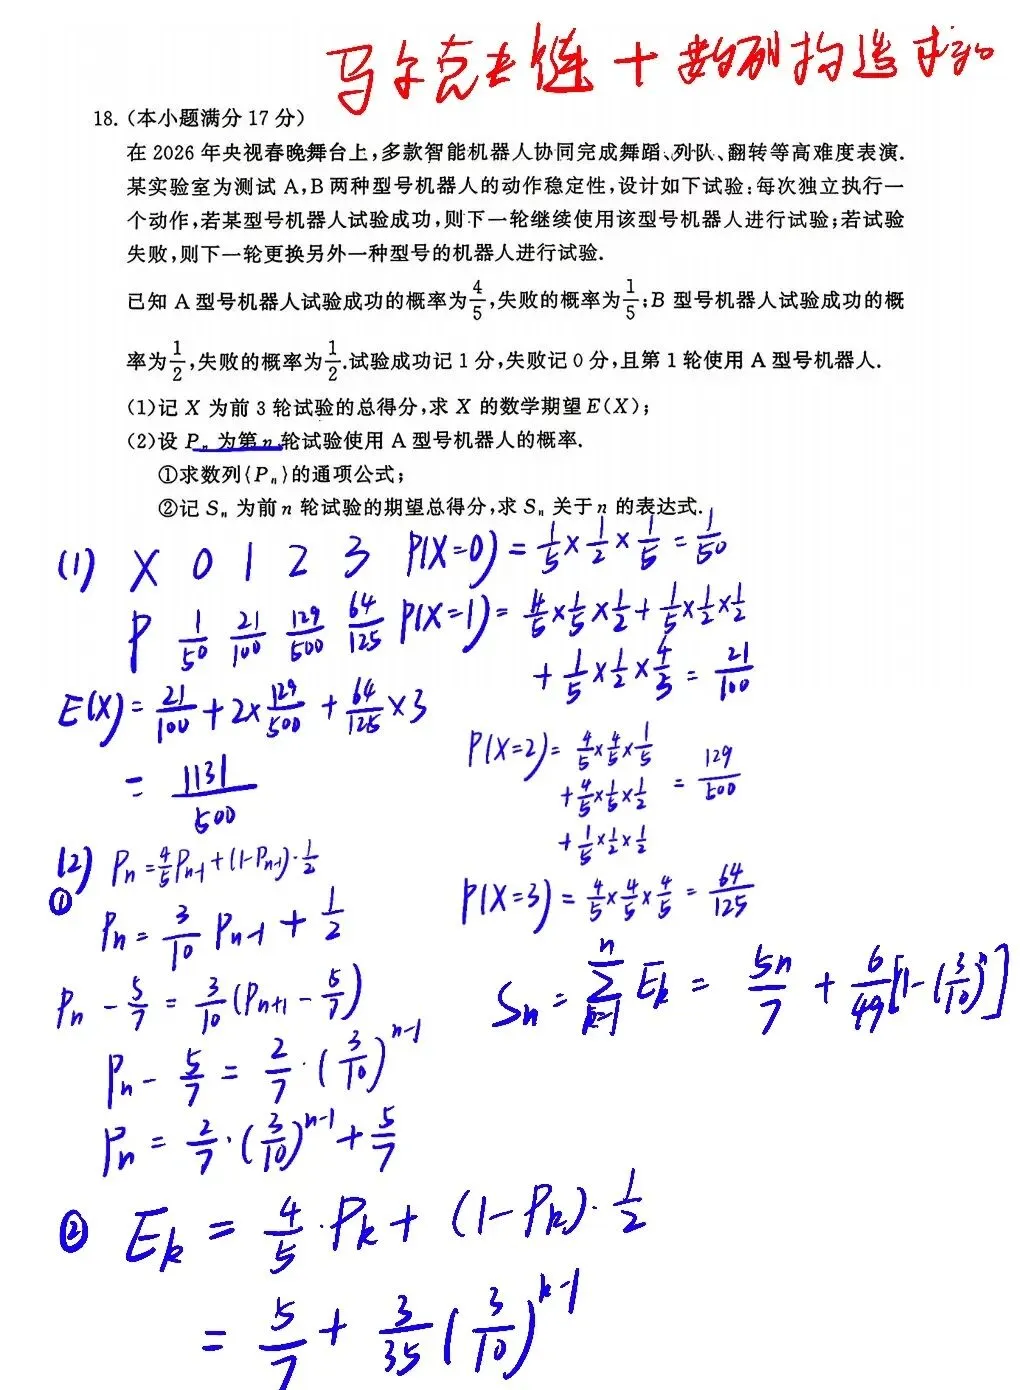 马尔克夫链+数列构造求和
18.(本小题满分17分)
在2026年央视春晚舞台上,多款智能机器人协同完成舞蹈、列队、翻转等高难度表演.
某实验室为测试A,B两种型号机器人的动作稳定性,设计如下试验:每次独立执行一
个动作,若某型号机器人试验成功,则下一轮继续使用该型号机器人进行试验;若试验
失败,则下一轮更换另外一种型号的机器人进行试验.
已知A型号机器人试验成功的概率为4/5,失败的概率为1/5;B型号机器人试验成功的概
率为1/2,失败的概率为1/2.试验成功记1分,失败记0分,且第1轮使用A型号机器人.
(1)记X为前3轮试验的总得分,求X的数学期望E(X);
(2)设Pₙ为第n轮试验使用A型号机器人的概率.
①求数列{Pₙ}的通项公式;
②记Sₙ为前n轮试验的期望总得分,求Sₙ关于n的表达式.
(1) X 0 1 2 3
P 1/50 21/100 129/500 64/125
E(X)=21/100+2×129/500+64/125×3
=1131/500
P(X=0)=1/5×1/2×1/5=1/50
P(X=1)=4/5×1/5×1/2+1/5×1/2×1/2
+1/5×1/2×4/5=21/100
P(X=2)=4/5×4/5×1/5
+4/5×1/5×1/2=129/500
+1/5×1/2×1/2
P(X=3)=4/5×4/5×4/5=64/125
(2)
① Pₙ=4/5Pₙ₋₁+(1-Pₙ₋₁)·1/2
Pₙ=3/10Pₙ₋₁+1/2
Pₙ-5/7=3/10(Pₙ₊₁-5/7)
Pₙ-5/7=2/7·(3/10)ⁿ⁻¹
Pₙ=2/7·(3/10)ⁿ⁻¹+5/7
② Eₖ=4/5·Pₖ+(1-Pₖ)·1/2
=5/7+3/35(3/10)ᵏ⁻¹
Sₙ=∑ⁿₖ₌₁Eₖ=5n/7+6/49[1-(3/10)ⁿ]